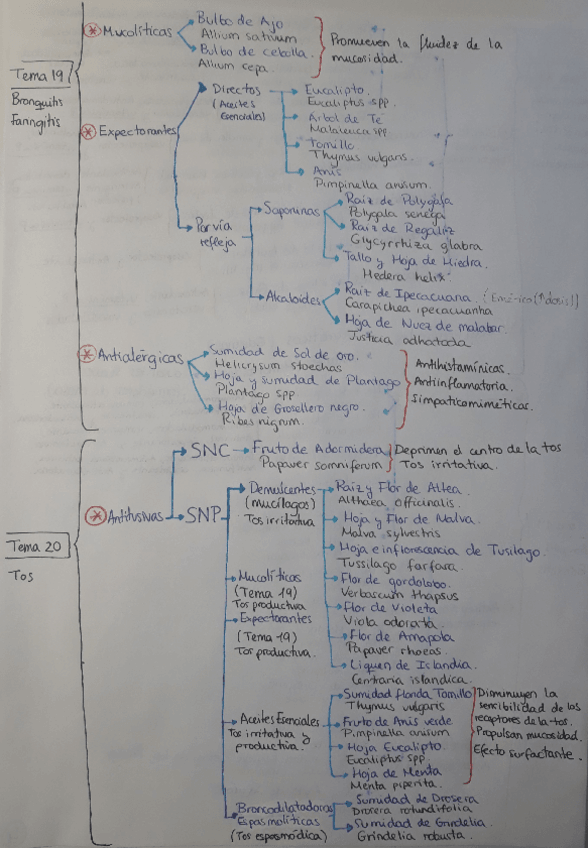 Tema 19
Bronquitis
Faringitis
* Mucolíticas
Bulbo de Ajo
Allium sativum
Bulbo de cebolla.
Allium cepa.
Promueven la fluidez de la
mucosidad.
* Expectorantes
Directos
(Aceites
Esenciales)
Eucalipto.
Eucaliptus spp.
Árbol de Té
Malaleuca spp
Tomillo
Thymus vulgaris.
Anís
Pimpinella anisum.
Por vía
refleja
Saponinas
Raiz de Polygala
Polygala senega
Raiz de Regaliz
Glycyrrhiza glabra
Tallo y Hoja de Hiedra.
Hedera helix.
Alcaloides
Raiz de Ipecacuana. (Emético (↑dosis))
Carapichea ipecacuanha
Hoja de Nuez de malabar.
Justicia adhatoda
* Antialérgicas
Sumidad de Sol de oro.
Helicrysum stoechas
Hoja y sumidad de Plantago
Plantago spp
Hoja de Grosellero negro.
Ribes nigrum.
Antihistamínicas.
Antiinflamatoria.
Simpaticomiméticas.
Tema 20
Tos
* Antitusivas
SNC
Fruto de Adormidera
Papaver somniferum
Deprimen el centro de la tos
Tos irritativa.
SNP
Demulcentes
(mucílagos)
Tos irritativa
Raiz y Flor de Altea.
Althaea officinalis.
Hoja y Flor de Malva.
Malva sylvestris
Hoja e inflorescencia de Tusilago.
Tussilago farfara.
Flor de gordolobo.
Verbascum thapsus
Flor de Violeta
Viola odorata
Flor de Amapola
Papaver rhoeas.
Liquen de Islandia.
Centraria islandica.
Mucolíticos
(Tema 19)
Tos productiva
Expectorantes
(Tema 19)
Tos productiva.
Aceites Esenciales
Tos irritativa y
productiva.
Sumidad florida Tomillo
Thymus vulgaris
Fruto de Anis verde
Pimpinella anisum
Hoja Eucalipto.
Eucaliptus spp
Hoja de Menta
Menta piperita.
Disminuyen la
sencibilidad de los
receptores de la tos.
Propulsan mucosidad.
Efecto surfactante.
Broncodilatadoras
Espasmolíticas
(Tos espasmódica)
Sumidad de Drosera
Drosera rotundifolia
Sumidad de Grindelia
Grindelia robusta.